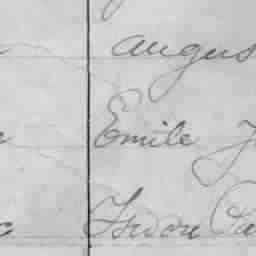 Augus
Emile J
Isidore Ca